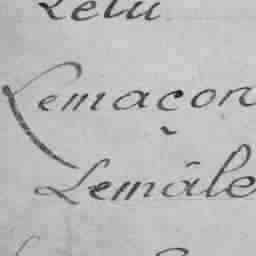 Lelu
Lemaçon
Lemâle